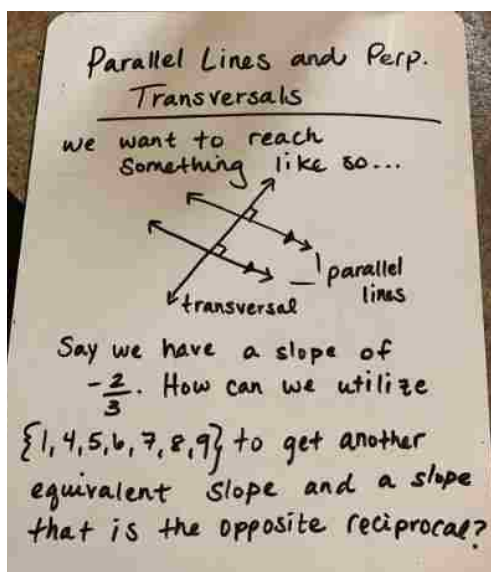 Parallel Lines and Perp.
Transversals
we want to reach
Something like so...
parallel
lines
transversal
Say we have a slope of
-2/3. How can we utilize
{1,4,5,6,7,8,9} to get another
equivalent slope and a slope
that is the opposite reciprocal?